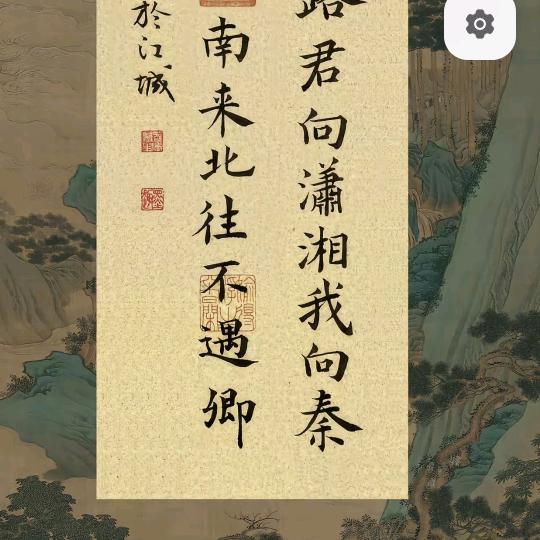 路君向瀟湘我向秦
南来北往不遇卿
於江城